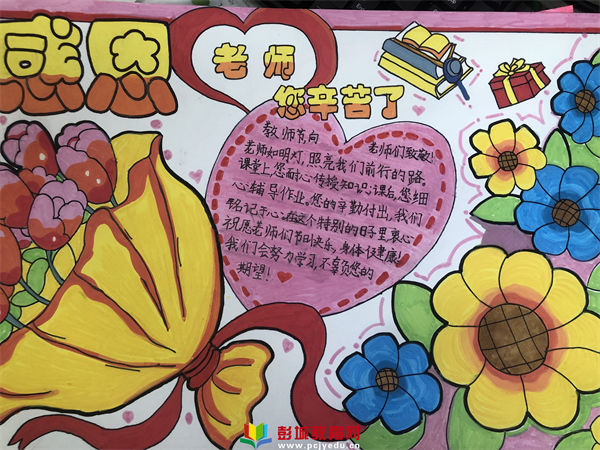 感恩
老师
您辛苦了
教师节向 老师们致敬!
老师如明灯,照亮我们前行的路。
课堂上,您耐心传授知识;课后,您细
心辅导作业。您的辛勤付出,我们
铭记于心。在这个特别的日子里,衷心
祝愿老师们节日快乐,身体健康!
我们会努力学习,不辜负您的
期望!
彭城教育网
www.pcjyedu.cn